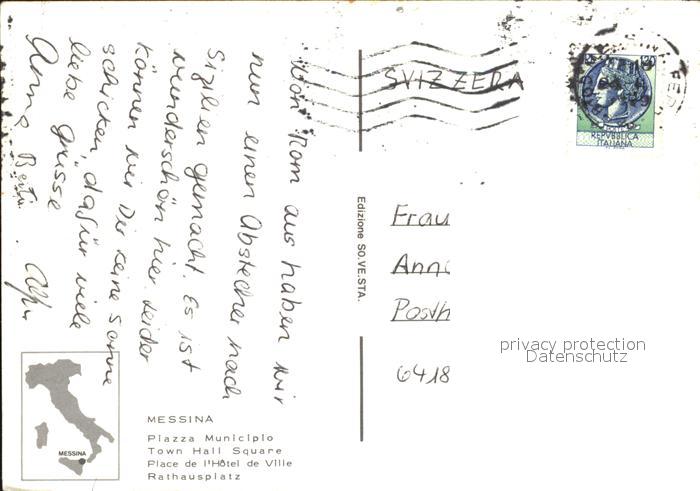 Von Rom aus haben wir
nun einen Abstecher nach
Sizilien gemacht. Es ist
wunderschön hier. Leider
können wir Dir keine Sonne
schicken, dafür viele
liebe Grüsse
SVIZZERA
120
REPVBBLICA
ITALIANA
Edizione SO.VE.STA.
Frau
Posth
6418
privacy protection
Datenschutz
MESSINA
MESSINA
Piazza Municipio
Town Hall Square
Place de l'Hôtel de Ville
Rathausplatz